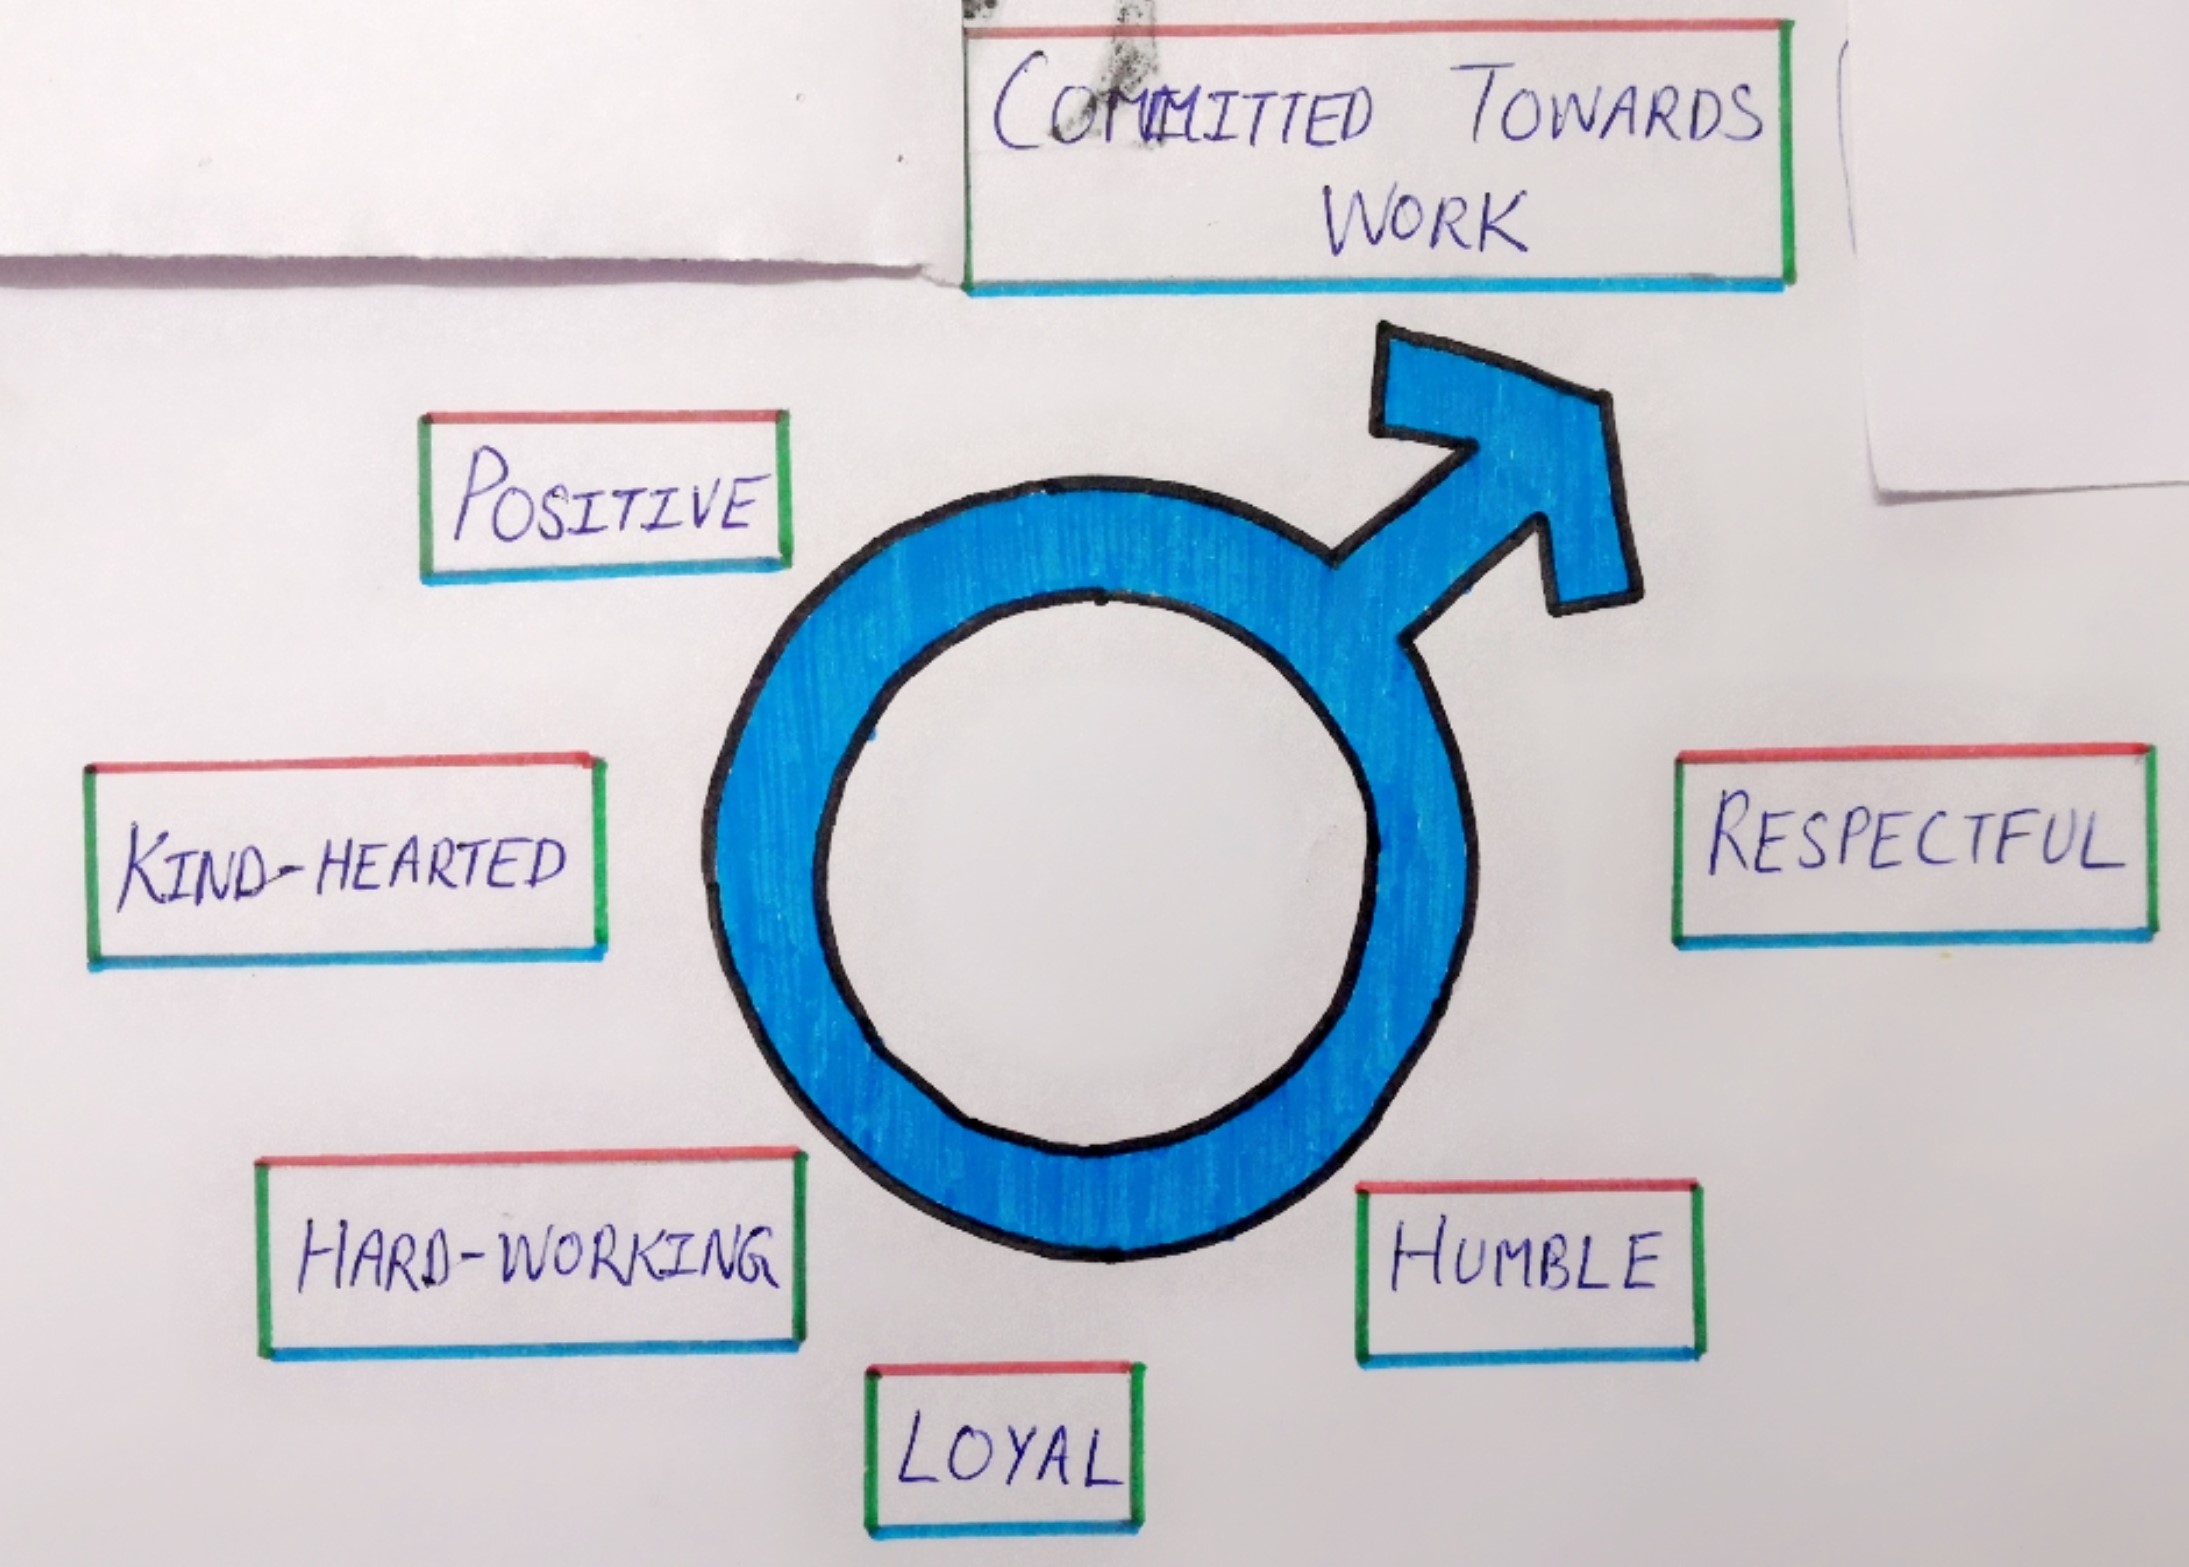 COMMITTED TOWARDS
WORK
POSITIVE
KIND-HEARTED
RESPECTFUL
HARD-WORKING
HUMBLE
LOYAL